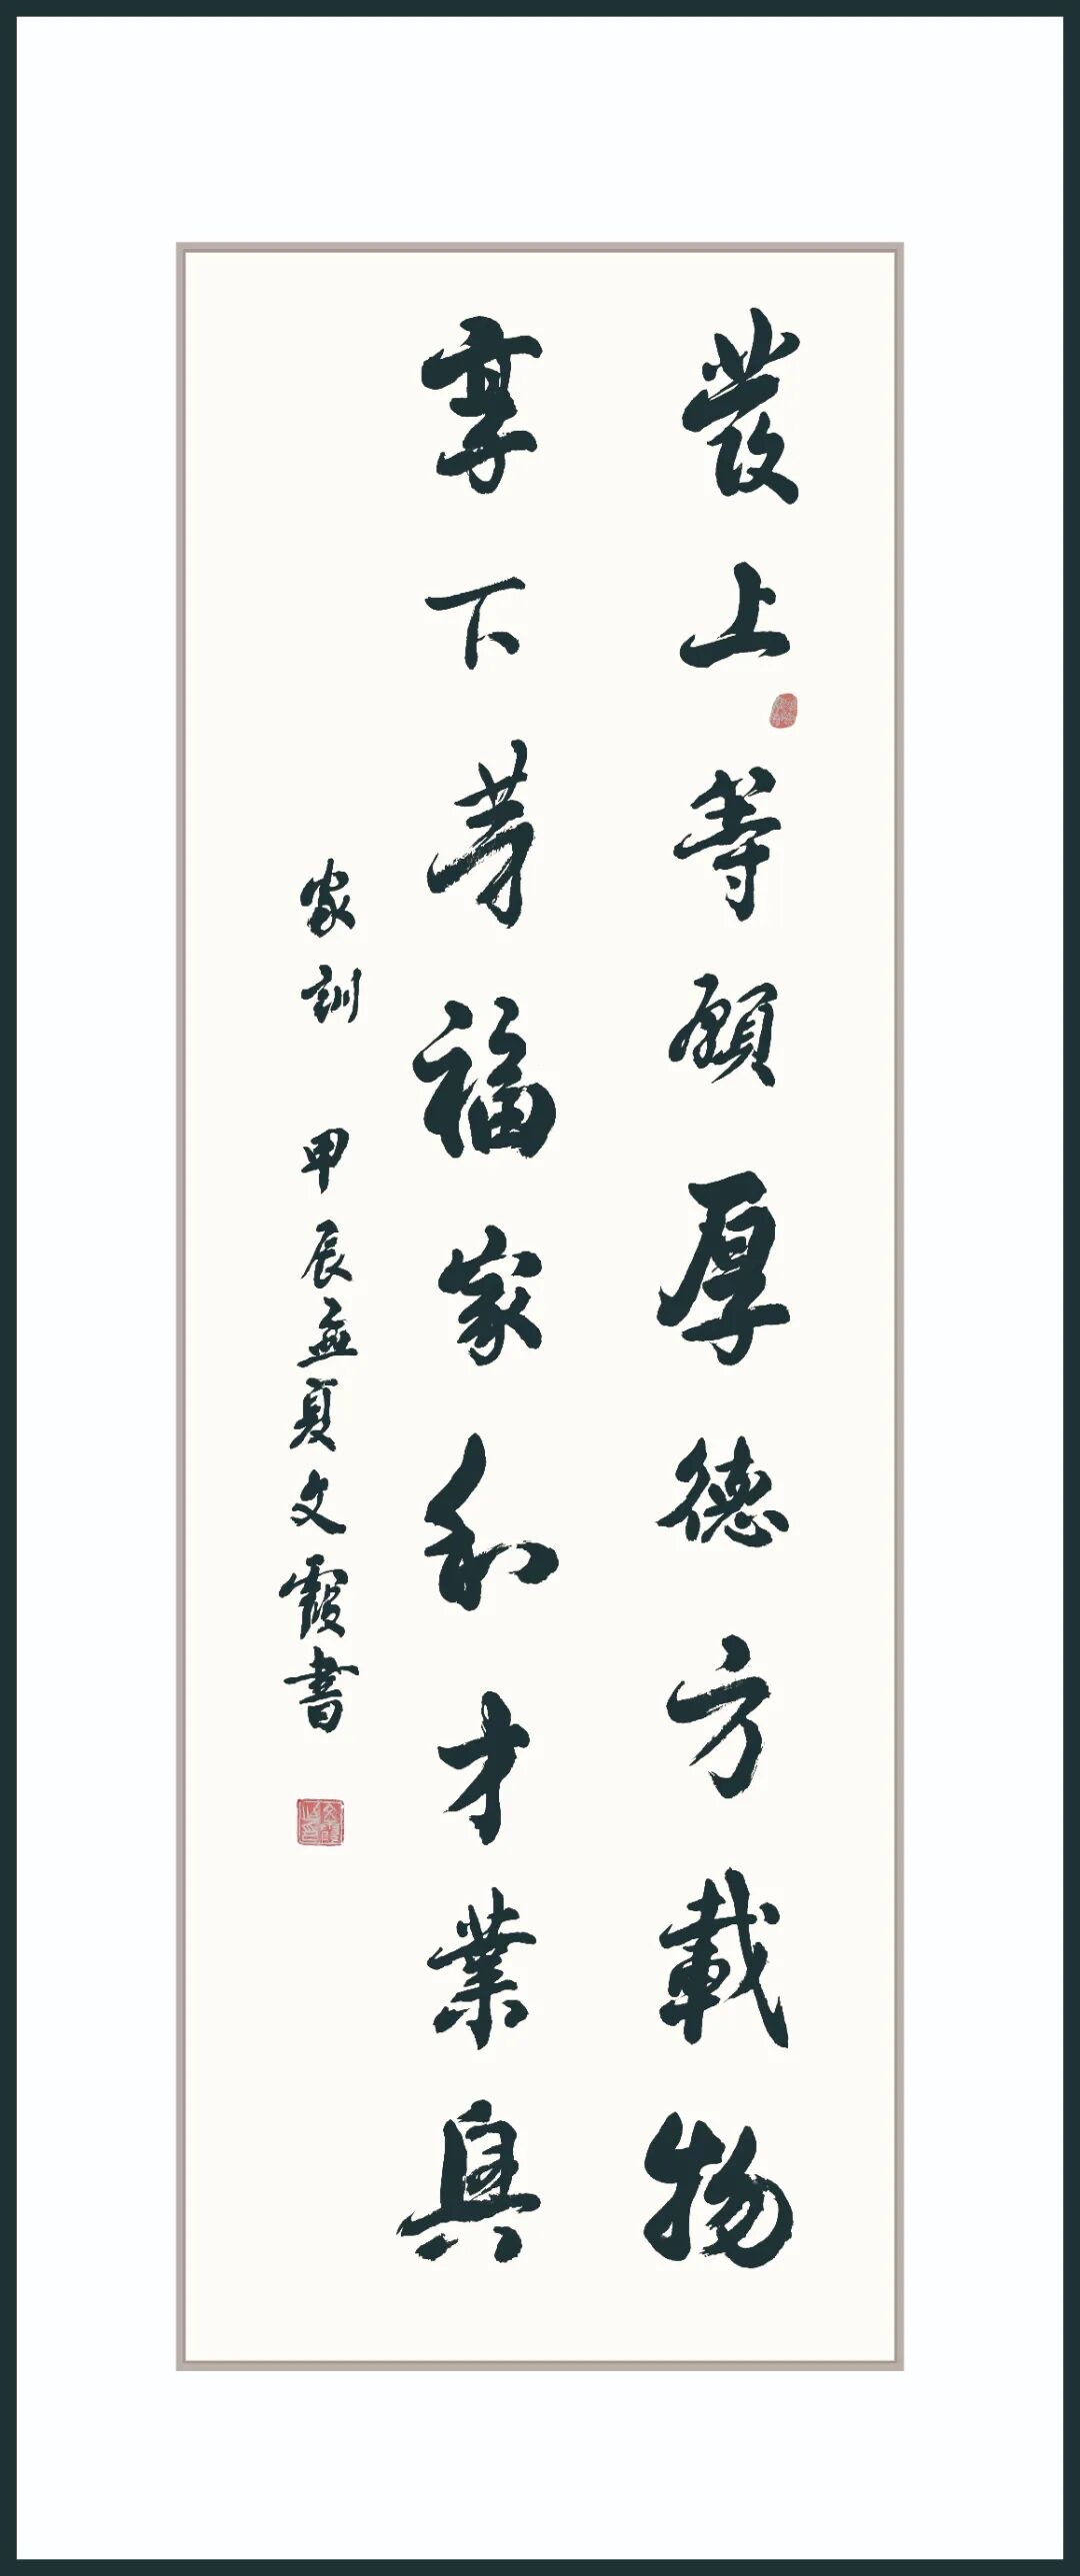 發上等願厚德方載物
享下等福家和才業興
家訓 甲辰孟夏文霞書